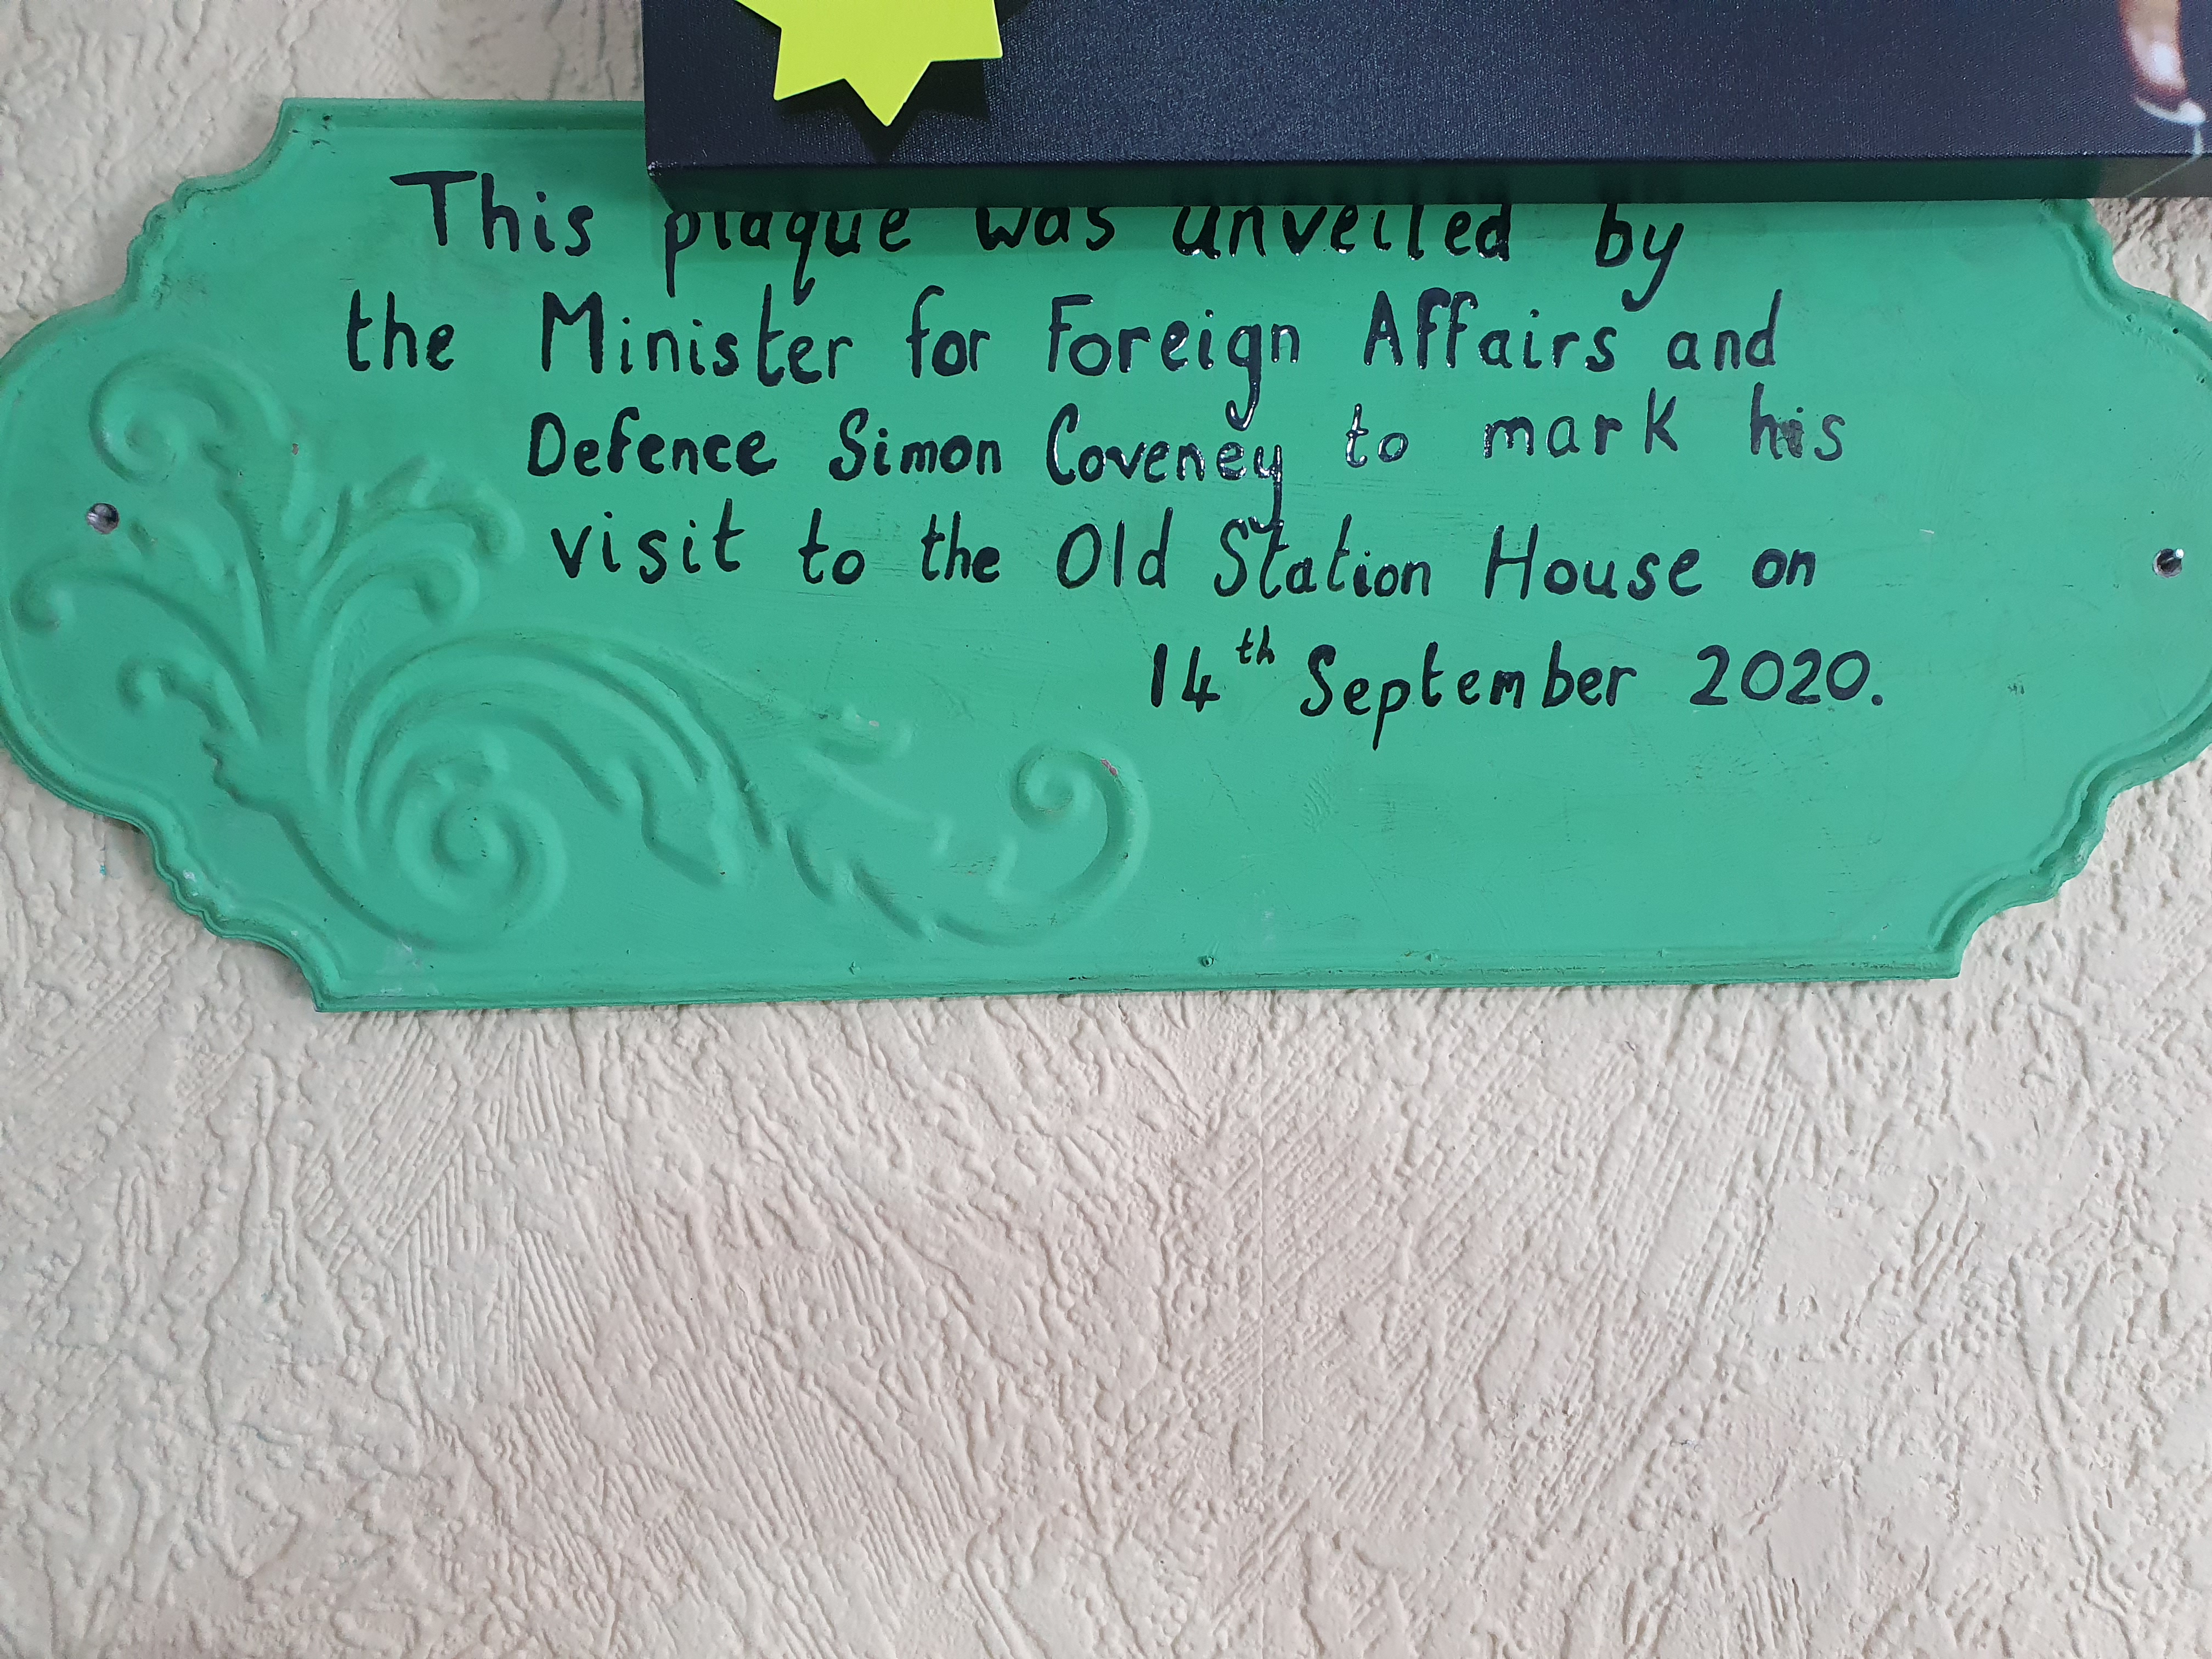 This plaque was unveiled by
the Minister for Foreign Affairs and
Defence Simon Coveney to mark his
visit to the Old Station House on
14th September 2020.